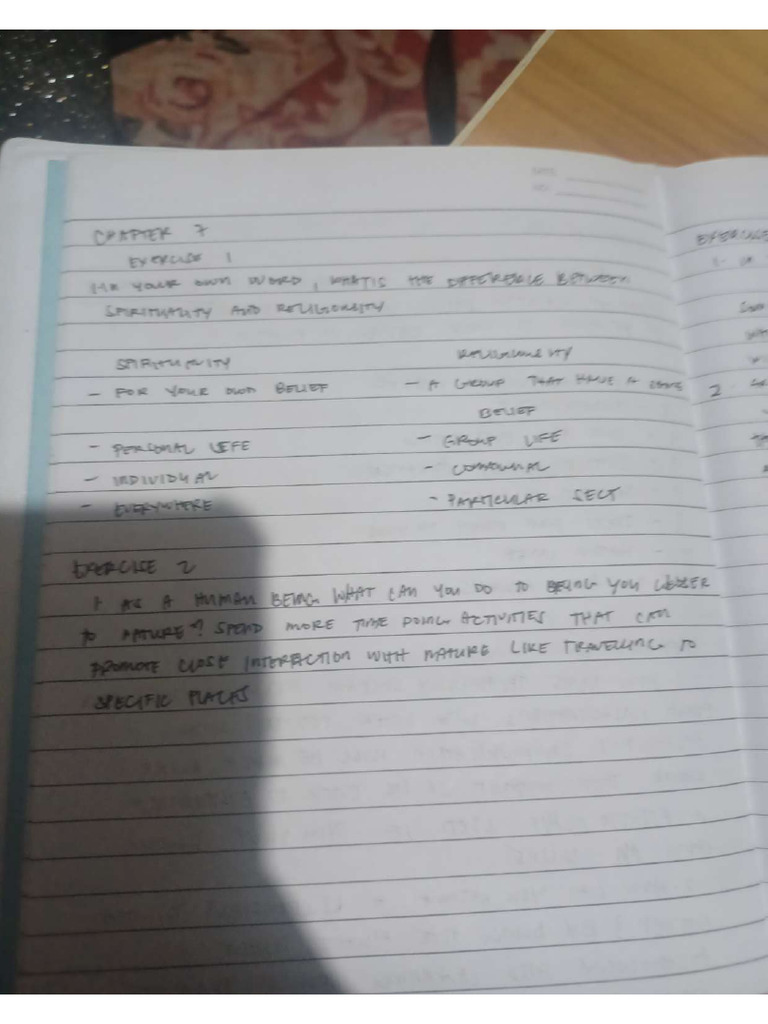 CHAPTER 7
EXERCISE 1
1. IN YOUR OWN WORD, WHAT IS THE DIFFERENCE BETWEEN
SPIRITUALITY AND RELIGIOSITY
SPIRITUALITY RELIGIOSITY
- FOR YOUR OWN BELIEF - A GROUP THAT HAVE A SAME
BELIEF
- PERSONAL LIFE - GROUP LIFE
- INDIVIDUAL - COMMUNAL
- EVERYWHERE - PARTICULAR SECT
EXERCISE 2
1 AS A HUMAN BEING WHAT CAN YOU DO TO BRING YOU CLOSER
TO NATURE? SPEND MORE TIME DOING ACTIVITIES THAT CAN
PROMOTE CLOSE INTERACTION WITH NATURE LIKE TRAVELLING TO
SPECIFIC PLACES
EXERCISE
2